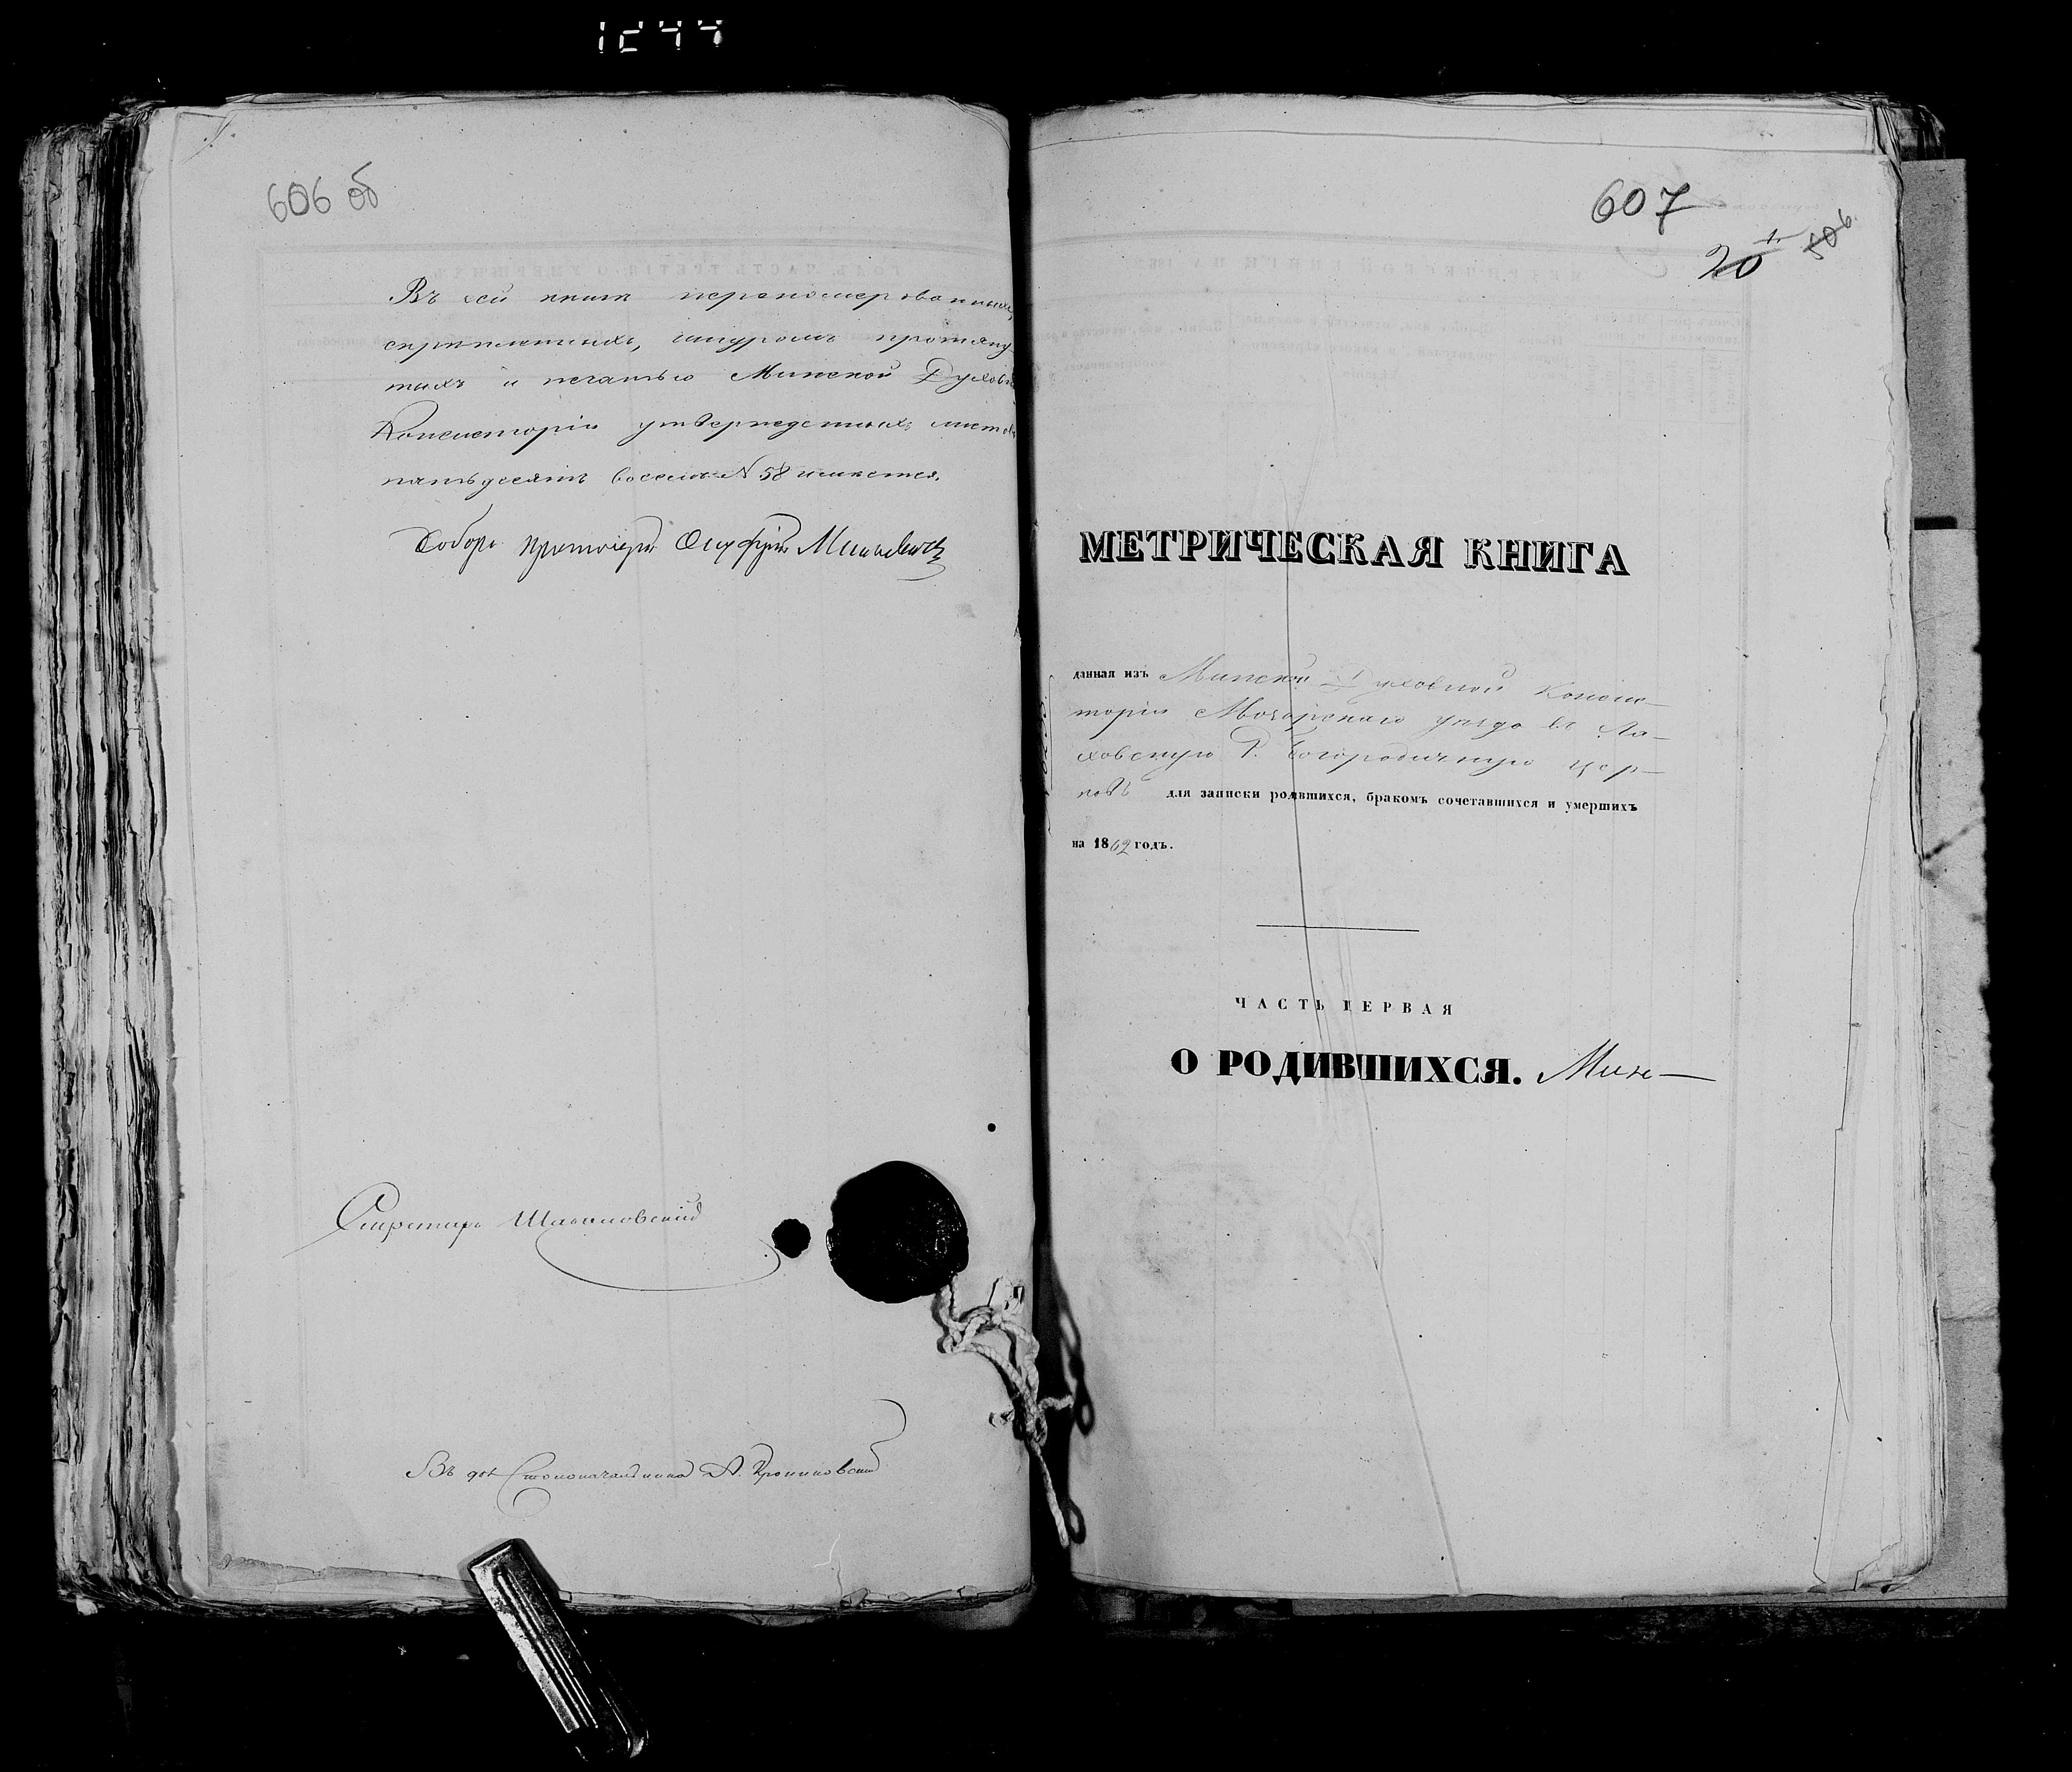 606 об
Въ сей книгѣ перономерованныхъ,
скрѣпленныхъ, шнуромъ протяну-
тыхъ и печатью Минской Духовн
Консисторіи утвержденныхъ листовъ
пятьдесятъ восемь N 58 имѣется.
Собор. Протоіерей Онуфрій
Секретарь
Въ дол. Столоначальника А.
607
20
1.
506.
МЕТРИЧЕСКАЯ КНИГА
данная изъ Минской Духовной Консис-
торіи Мозырскаго уѣзда въ Ла-
ховскую Р. Богородичную цер-
ковь для записки родившихся, бракомъ сочетавшихся и умершихъ
на 1862 годъ.
ЧАСТЬ ПЕРВАЯ
О РОДИВШИХСЯ. Мин-